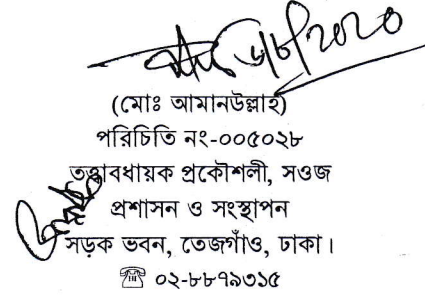 ৬/৮/২০২০
(মোঃ আমানউল্লাহ)
পরিচিতি নং-০০৫০২৮
তত্ত্বাবধায়ক প্রকৌশলী, সওজ
প্রশাসন ও সংস্থাপন
সড়ক ভবন, তেজগাঁও, ঢাকা।
☎ ০২-৮৮৭৯৩১৫